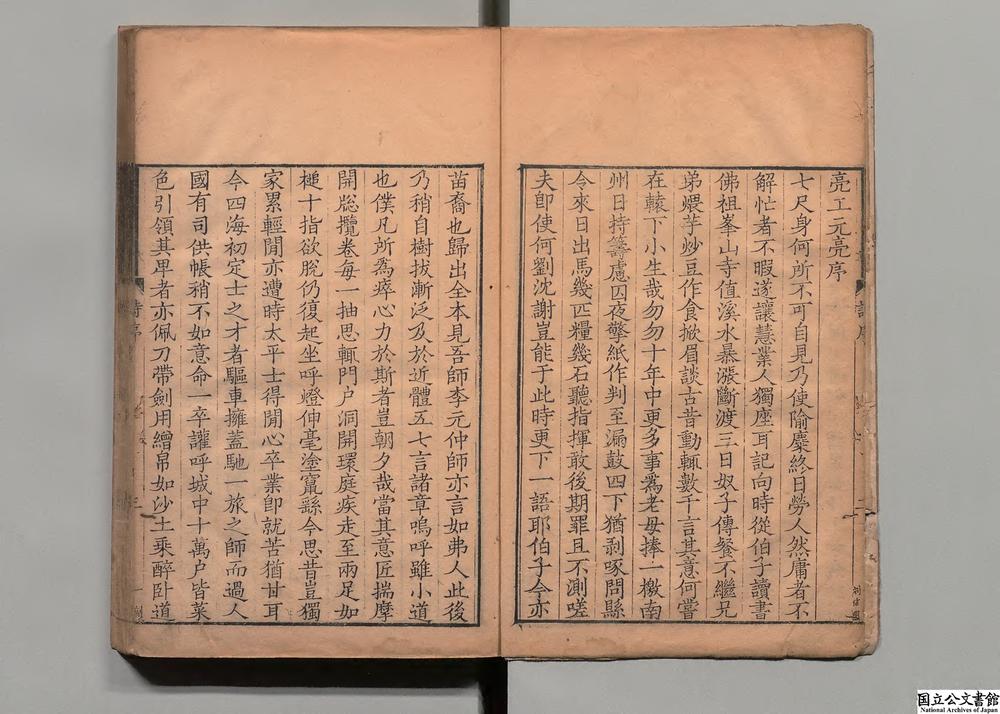 亮工元亮序
七尺身何所不可自見乃使隃麋終日勞人然庸者不
解忙者不暇遂讓慧業人獨座耳記向時從伯子讀書
佛祖峯山寺值溪水暴漲斷渡三日奴子傳餐不繼兄
弟煨芋炒豆作食掀眉談古昔動輒數千言其意何嘗
在轅下小生哉勿勿十年中更多事為老母捧一檄南
州日持籌慮囚夜擎紙作判至漏鼓四下猶剥啄問縣
令來日出馬幾匹糧幾石聽指揮敢後期罪且不測嗟
夫卽使何劉沈謝豈能于此時更下一語耶伯子今亦
苗裔也歸出全本見吾師李元仲師亦言如弗人此後
乃稍自樹拔漸泛及於近體五七言諸章嗚呼雖小道
也僕凡所為瘁心力於斯者豈朝夕哉當其意匠揣摩
開牕攬卷每一抽思輒門户洞開環庭疾走至兩足如
槌十指欲脫仍復起坐呼燈伸毫塗竄繇今思昔豈獨
家累輕閒亦遭時太平士得閒心卒業卽就苦猶甘耳
今四海初定士之才者驅車擁蓋馳一旅之師而過人
國有司供帳稍不如意命一卒讙呼城中十萬户皆菜
色引領其卑者亦佩刀帶劍用繒帛如沙土乘醉卧道
詩序
三
国立公文書館
National Archives of Japan